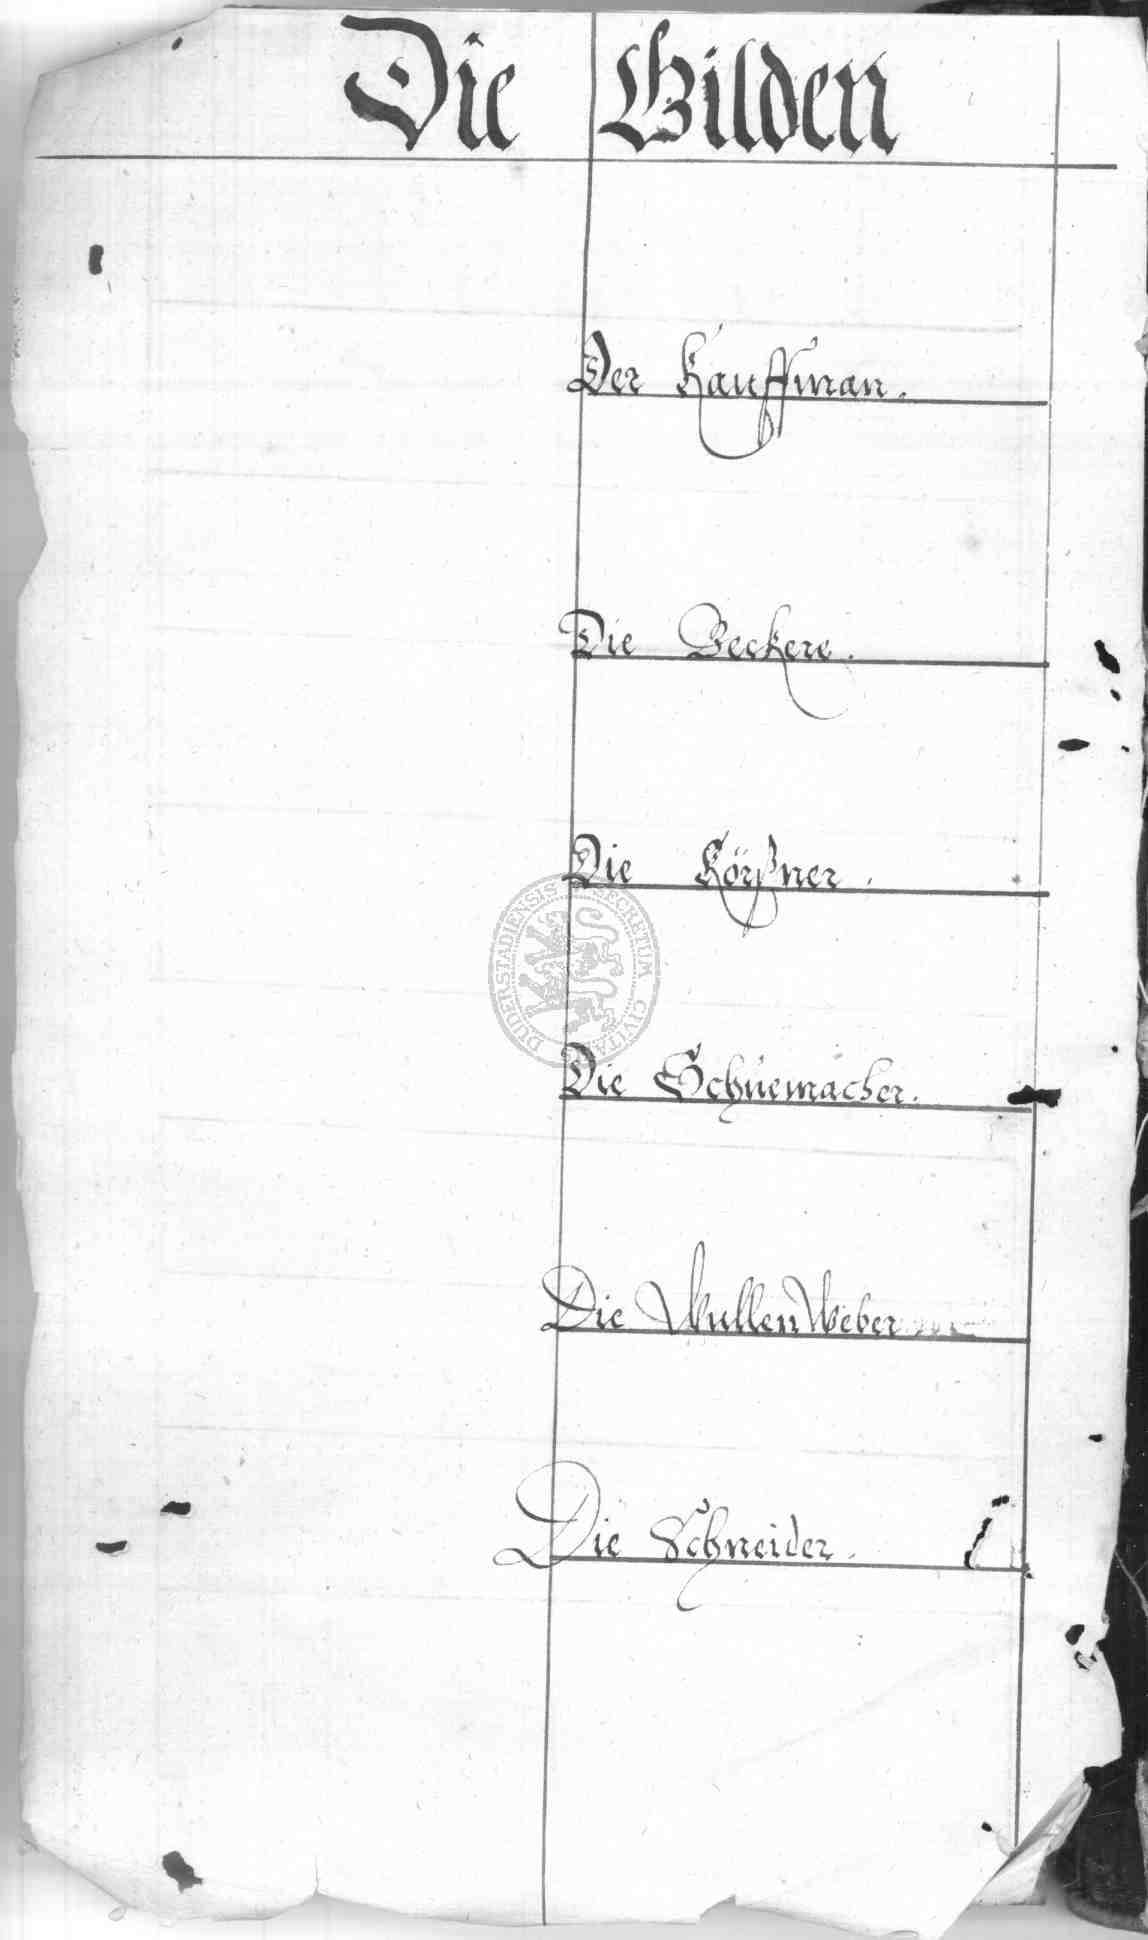 Die Gilden
Der Kauffman.
Die Beckere.
Die Körßner.
DUDERSTADIENSIS SECRETUM CIVITATIS
Die Schuemacher.
Die Wullen Weber
Die Schneider.